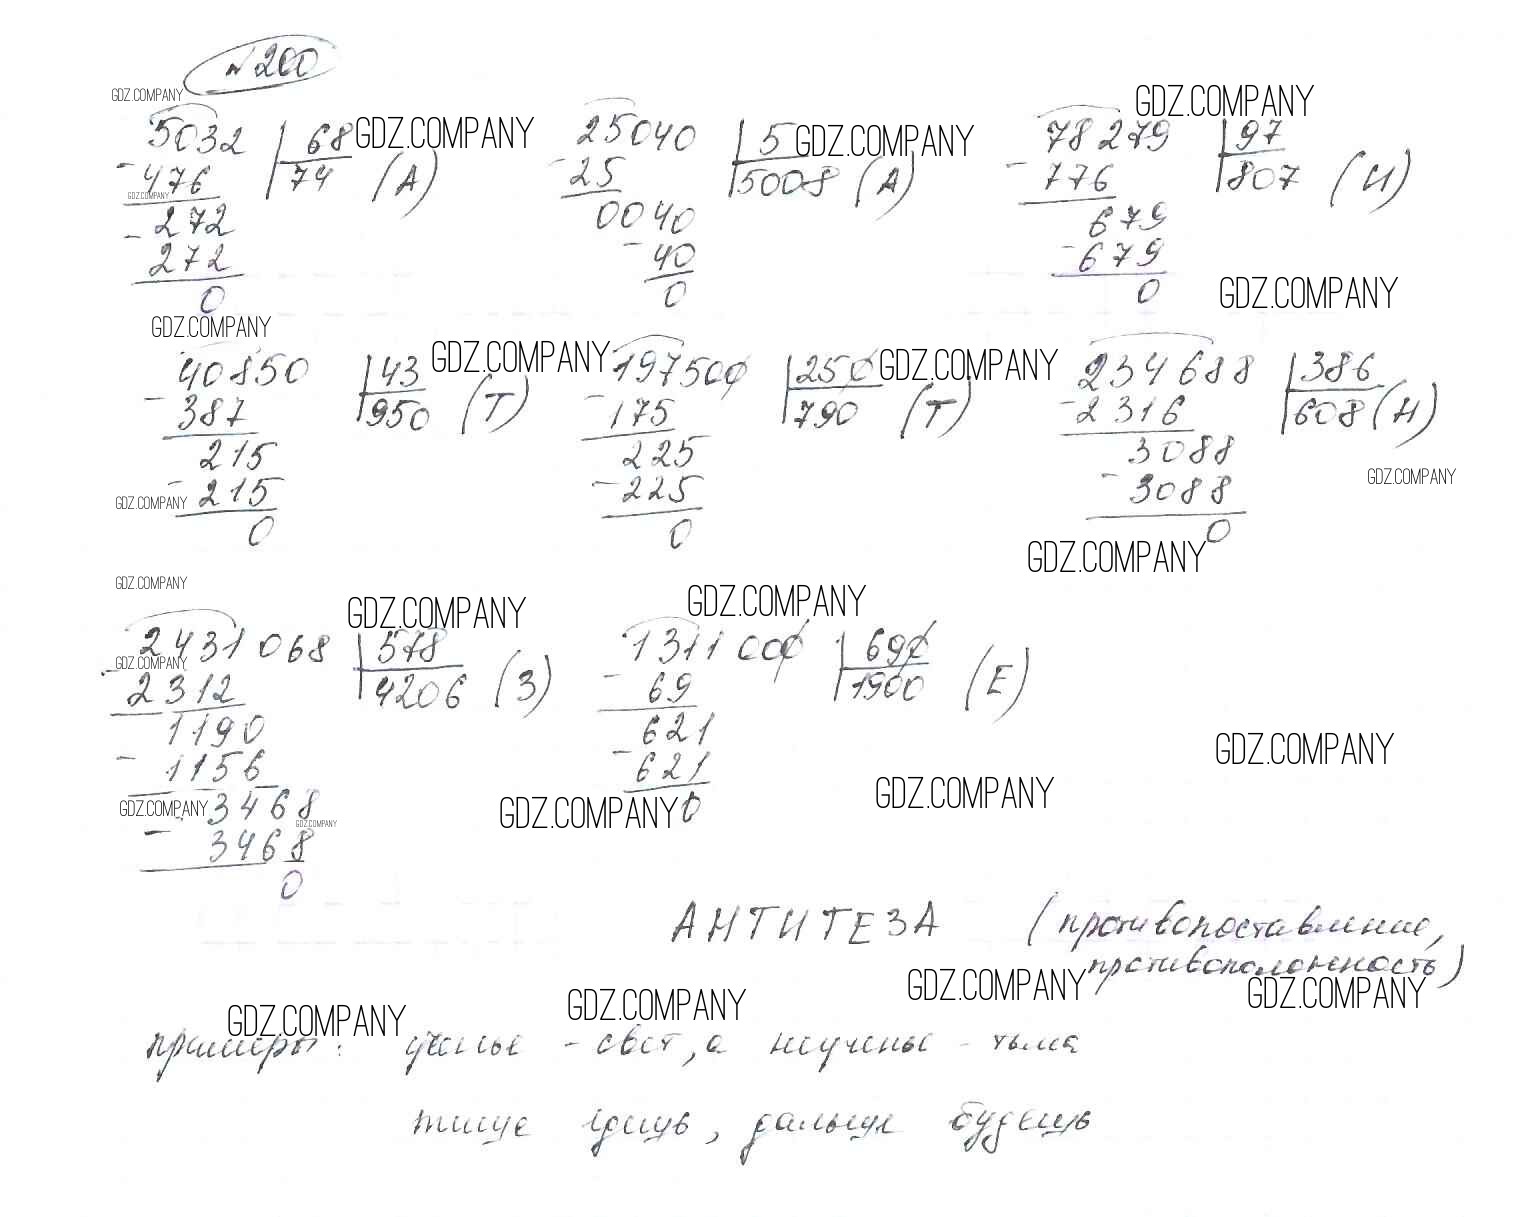 № 200
GDZ.COMPANY
5032 | 68 GDZ.COMPANY 25040 | 5 GDZ.COMPANY 78279 | 97 GDZ.COMPANY
- 476 74 (А) - 25 5008 (А) - 776 807 (И)
GDZ.COMPANY
- 272 0040 679
272 - 40 - 679
0 0 0
GDZ.COMPANY GDZ.COMPANY
40850 | 43 GDZ.COMPANY 197500 | 250 GDZ.COMPANY 234688 | 386
- 387 950 (Т) - 175 790 (Т) - 2316 608 (Н)
215 225 3088
GDZ.COMPANY
- 215 - 225 - 3088
GDZ.COMPANY
0 0 0
GDZ.COMPANY
GDZ.COMPANY GDZ.COMPANY GDZ.COMPANY
2431068 | 578 1311000 | 690
GDZ.COMPANY
- 2312 4206 (З) - 69 1900 (Е)
1190 621
GDZ.COMPANY
- 1156 - 621
GDZ.COMPANY 3468 GDZ.COMPANY 0 GDZ.COMPANY
GDZ.COMPANY
- 3468
0
АНТИТЕЗА (противопоставление,
противоположность)
GDZ.COMPANY GDZ.COMPANY GDZ.COMPANY GDZ.COMPANY
примеры: ученье - свет, а неученье - тьма
тише едешь, дальше будешь